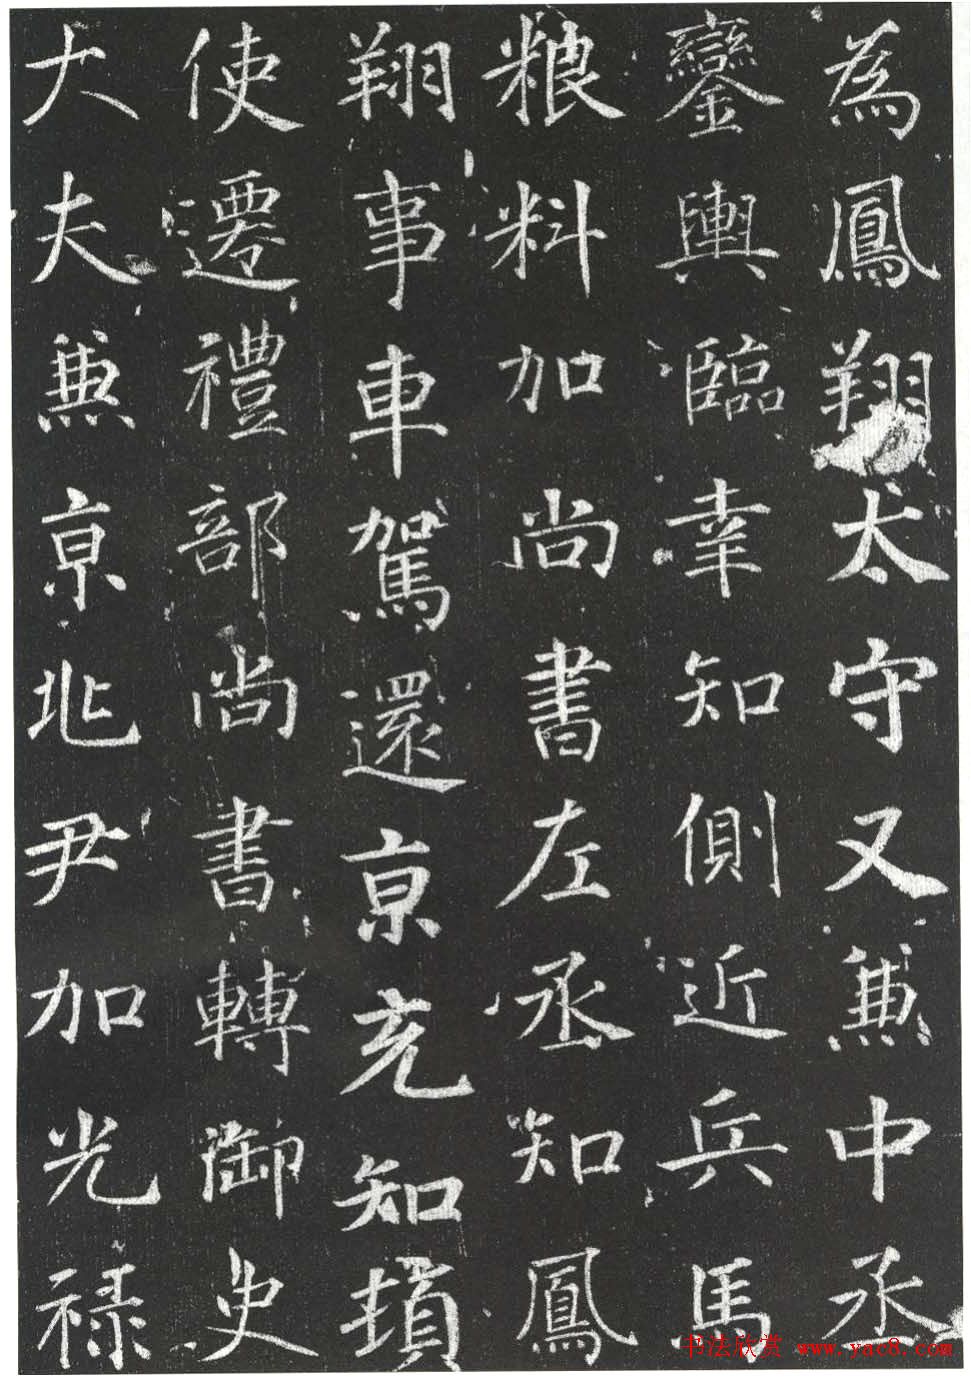 為鳳翔太守又兼中丞
鑾輿臨幸知側近兵馬
粮料加尚書左丞知鳳
翔事車駕還京充知頓
使遷禮部尚書轉御史
大夫兼京兆尹加光禄
书法欣赏 www.yac8.com